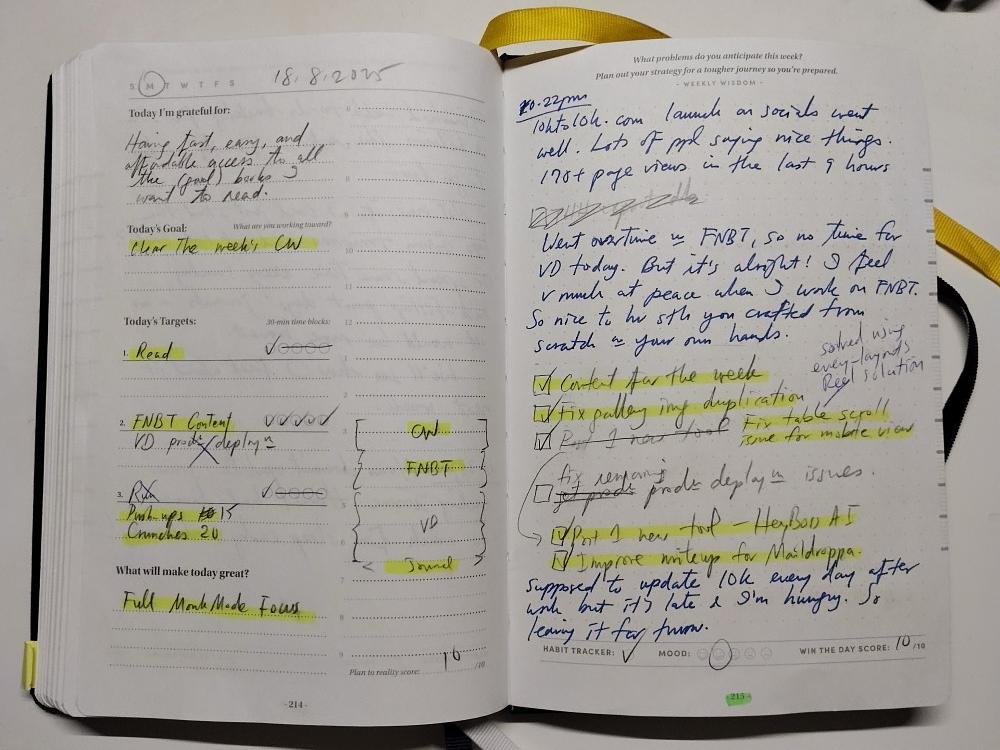 S M T W T F S
18.8.2025
Today I'm grateful for:
Having fast, easy, and
affordable access to all
the (good) books I
want to read.
Today's Goal: What are you working toward?
Clear the week's CW
Today's Targets: 30-min time blocks:
1. Read
2. FNBT Content
VD prodn deployn
3. Run
Push-ups 15
Crunches 20
What will make today great?
Full Monk Mode Focus
6
7
8
9
10
11
12
1
2
3
CW
4
FNBT
5
VD
6
Journal
7
8
9
Plan to reality score: 10 /10
- 214 -
What problems do you anticipate this week?
Plan out your strategy for a tougher journey so you're prepared.
- WEEKLY WISDOM -
10.22pm
10kto10k.com launch on socials went
well. Lots of ppl saying nice things.
170+ page views in the last 9 hours
Went overtime w FNBT, so no time for
VD today. But it's alright! I feel
v much at peace when I work on FNBT.
So nice to hv sth you crafted from
scratch w your own hands.
solved using
every-layout's
Reel solution
Content for the week
Fix gallery img duplication
Post 1 new tool Fix table scroll
issue for mobile view
fix remaining
prodn deployn issues.
Post 1 new tool - HeyBoss AI
Improve writeup for Maildroppa.
Supposed to update 10k every day after
work but it's late & I'm hungry. So
leaving it for tmrw.
HABIT TRACKER: MOOD: WIN THE DAY SCORE: 10 /10
215